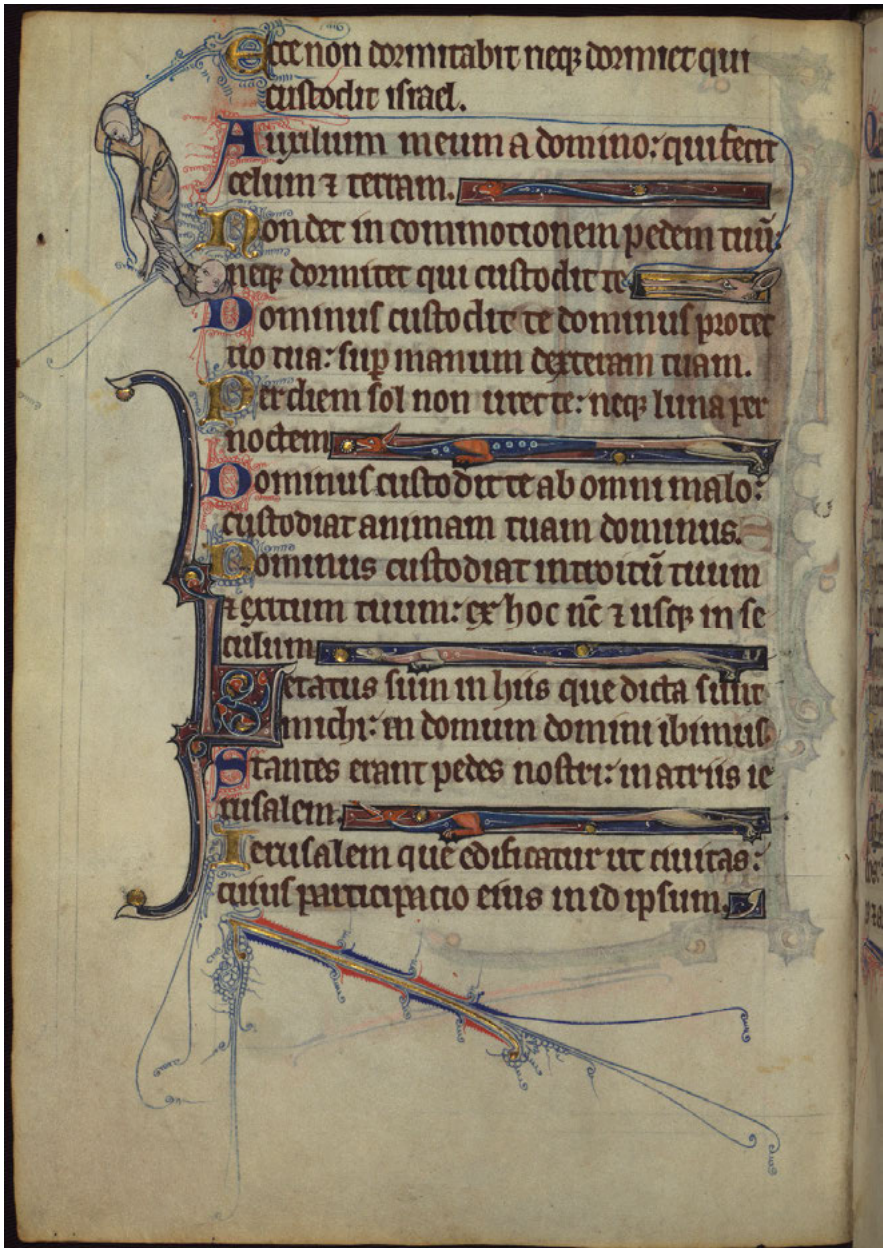 Ecce non dormitabit neqꝫ dormiet qui
custodit israel.
Auxilium meum a domino: qui fecit
celum ⁊ terram.
Non det in commotionem pedem tuū:
neqꝫ dormitet qui custodit te
Dominus custodit te dominus protec
tio tua: suꝑ manum dexteram tuam.
Per diem sol non uret te: neqꝫ luna per
noctem
Dominus custodit te ab omni malo:
custodiat animam tuam dominus.
Dominus custodiat introitū tuum
⁊ exitum tuum: ex hoc nc̄ ⁊ usqꝫ in se
culum
Letatus sum in hiis que dicta sunt
michi: in domum domini ibimus.
Stantes erant pedes nostri: in atriis ie
rusalem.
Ierusalem que edificatur ut ciuitas:
cuius participacio eius in id ipsum.